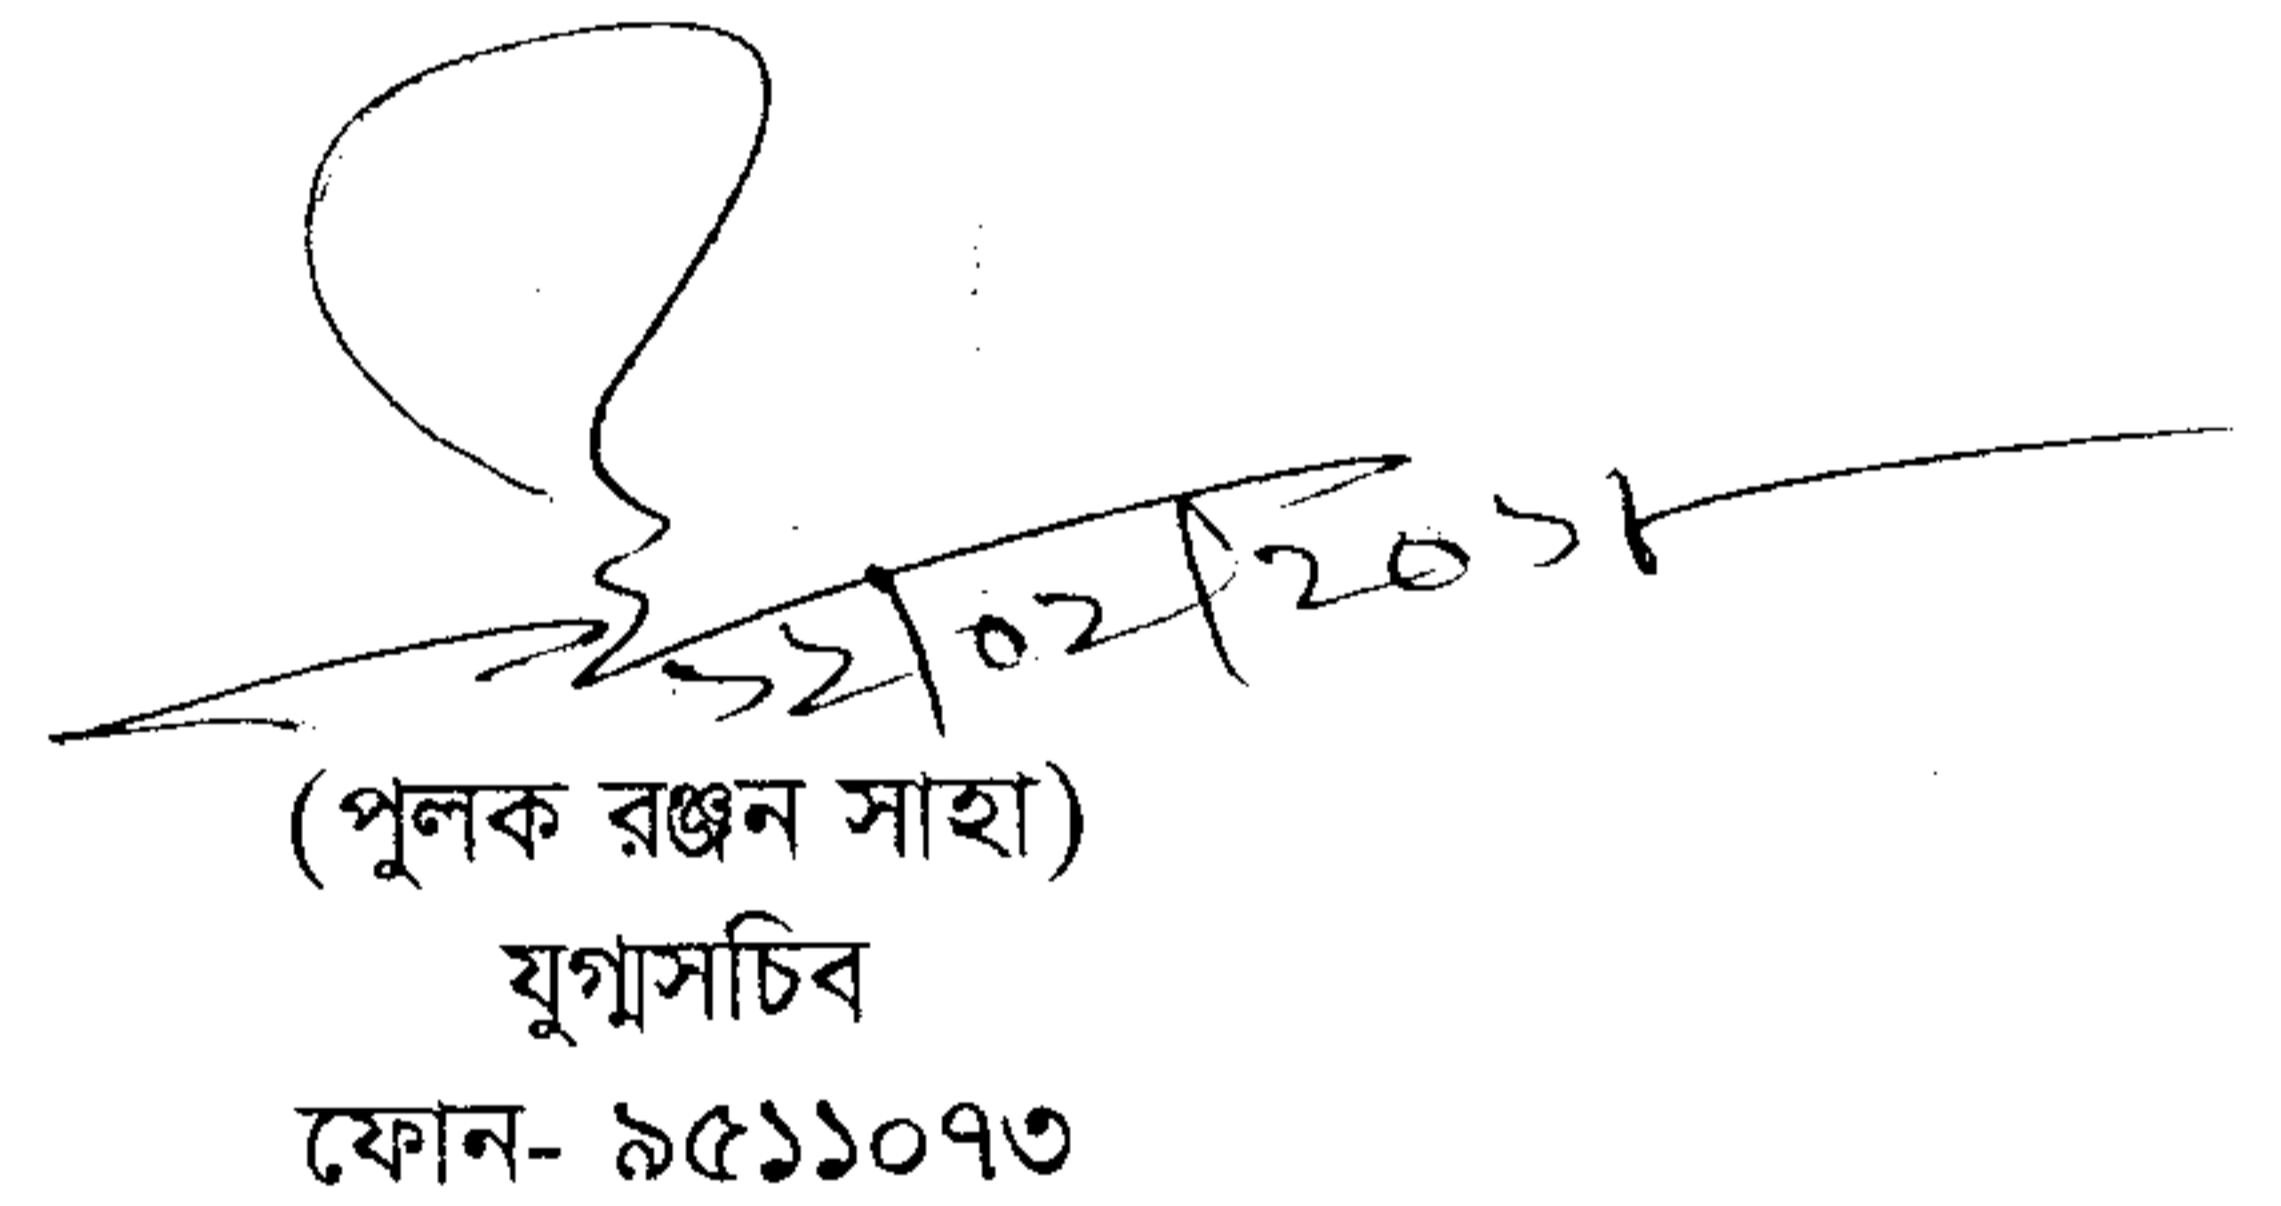 ১২/০২/২০১৮
(পুলক রঞ্জন সাহা)
যুগ্মসচিব
ফোন- ৯৫১১০৭৩